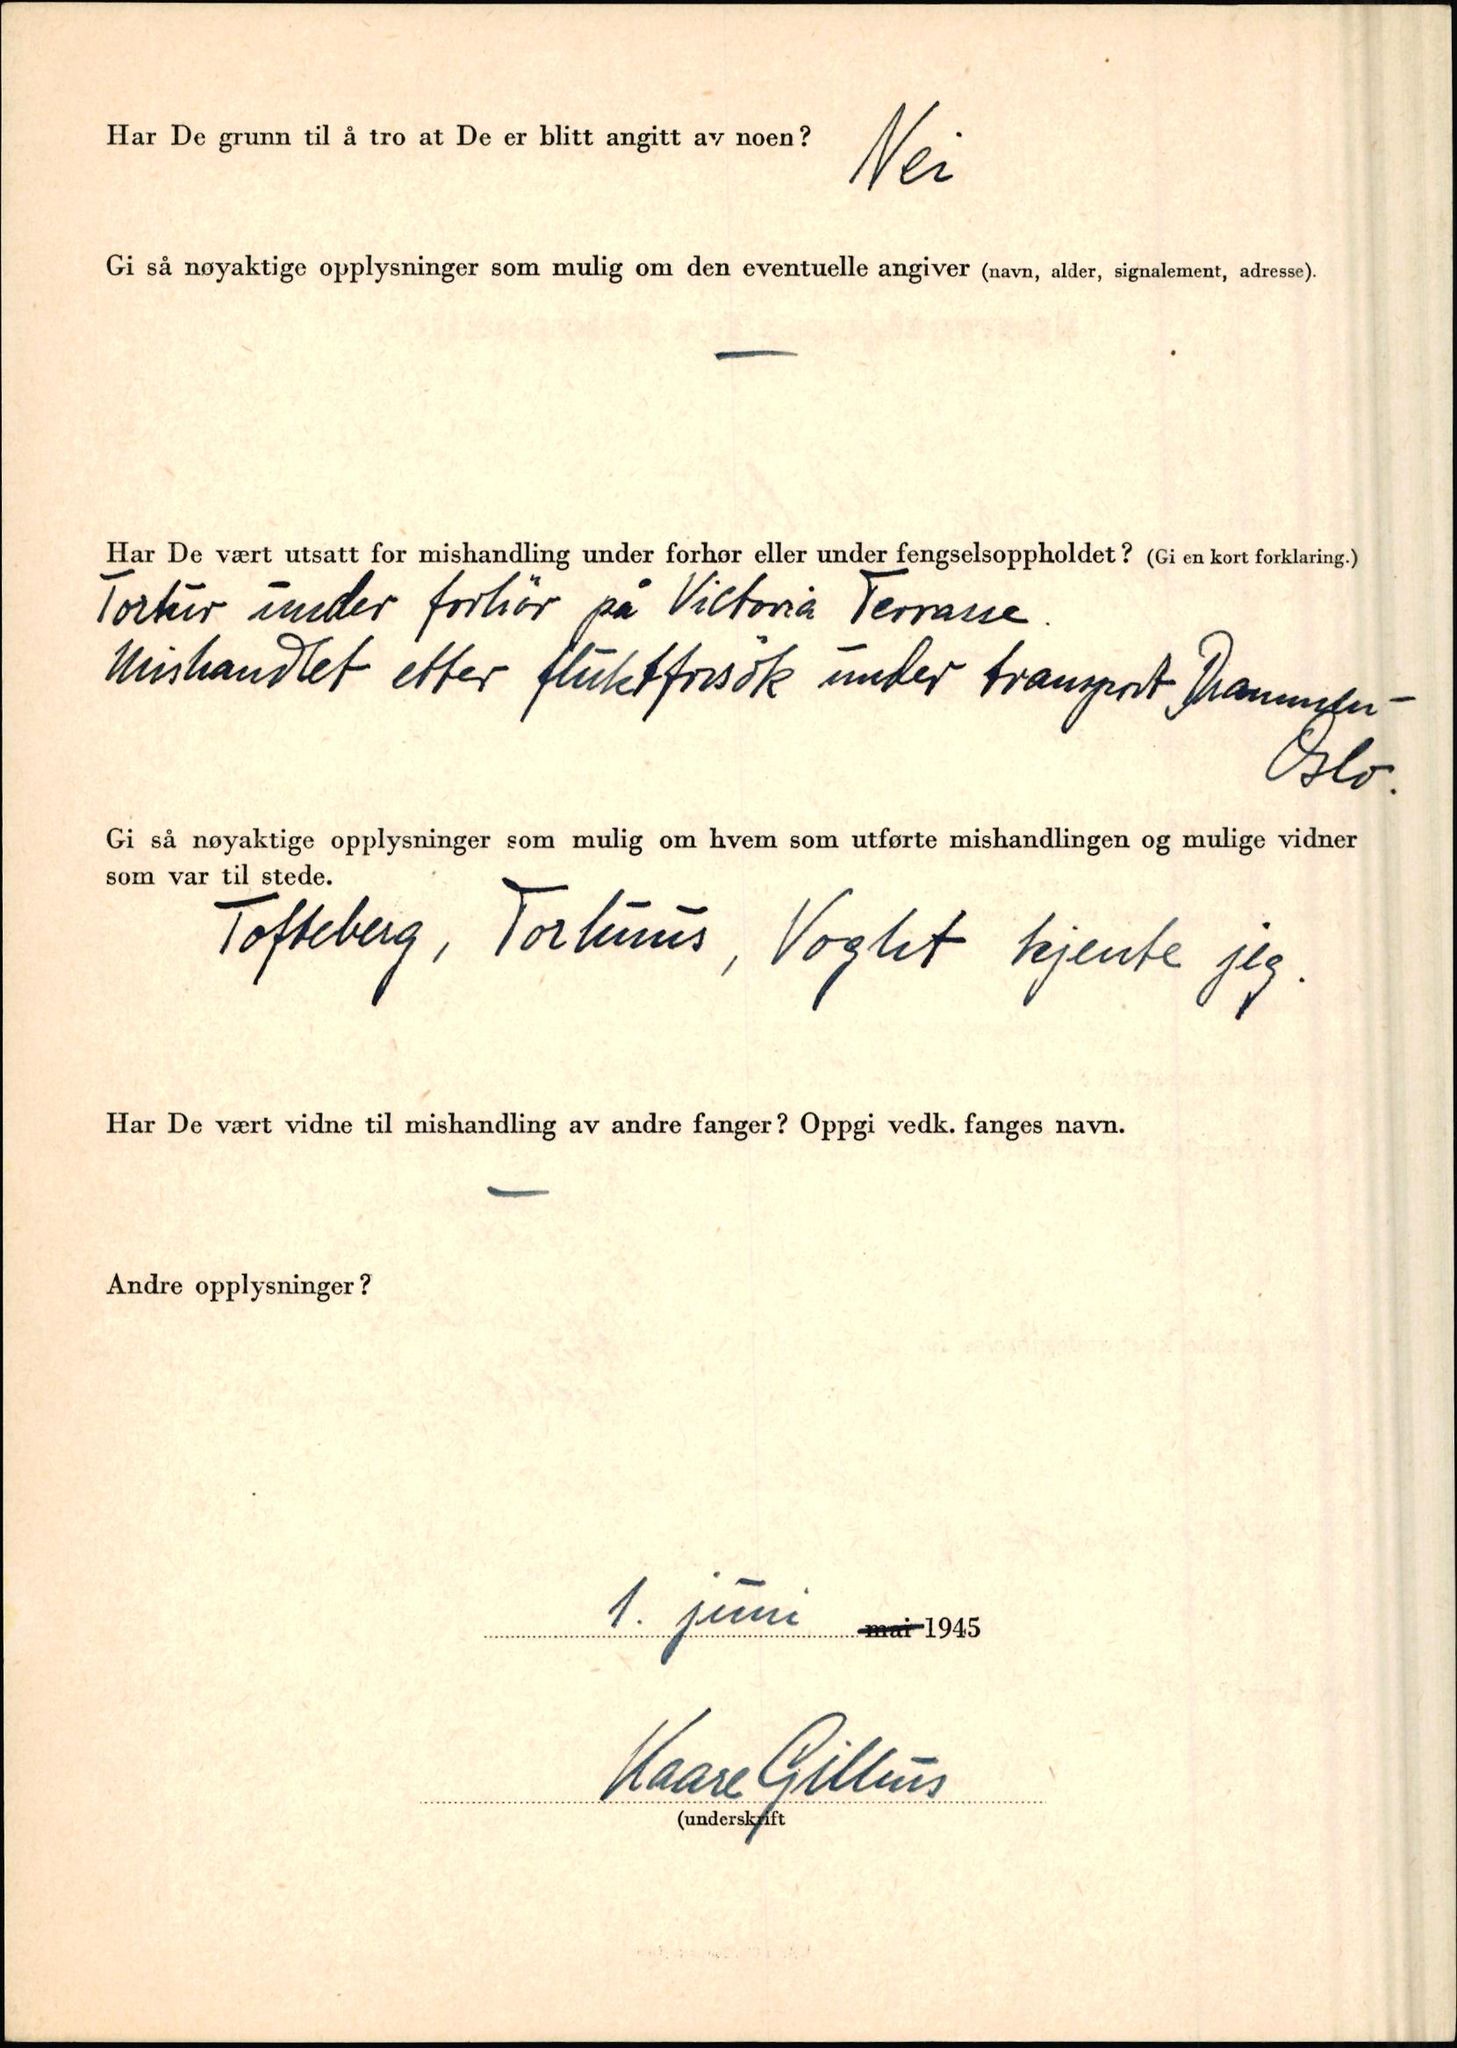 Har De grunn til å tro at De er blitt angitt av noen? Nei
Gi så nøyaktige opplysninger som mulig om den eventuelle angiver (navn, alder, signalement, adresse).
—
Har De vært utsatt for mishandling under forhør eller under fengselsoppholdet? (Gi en kort forklaring.)
Tortur under forhör på Victoria Terrasse.
Mishandlet etter fluktforsök under transport Drammen-
Oslo.
Gi så nøyaktige opplysninger som mulig om hvem som utførte mishandlingen og mulige vidner
som var til stede.
Tofteberg, Voght kjente jeg.
Har De vært vidne til mishandling av andre fanger? Oppgi vedk. fanges navn.
—
Andre opplysninger?
1. juni mai 1945
Kaare Gillhus
(underskrift